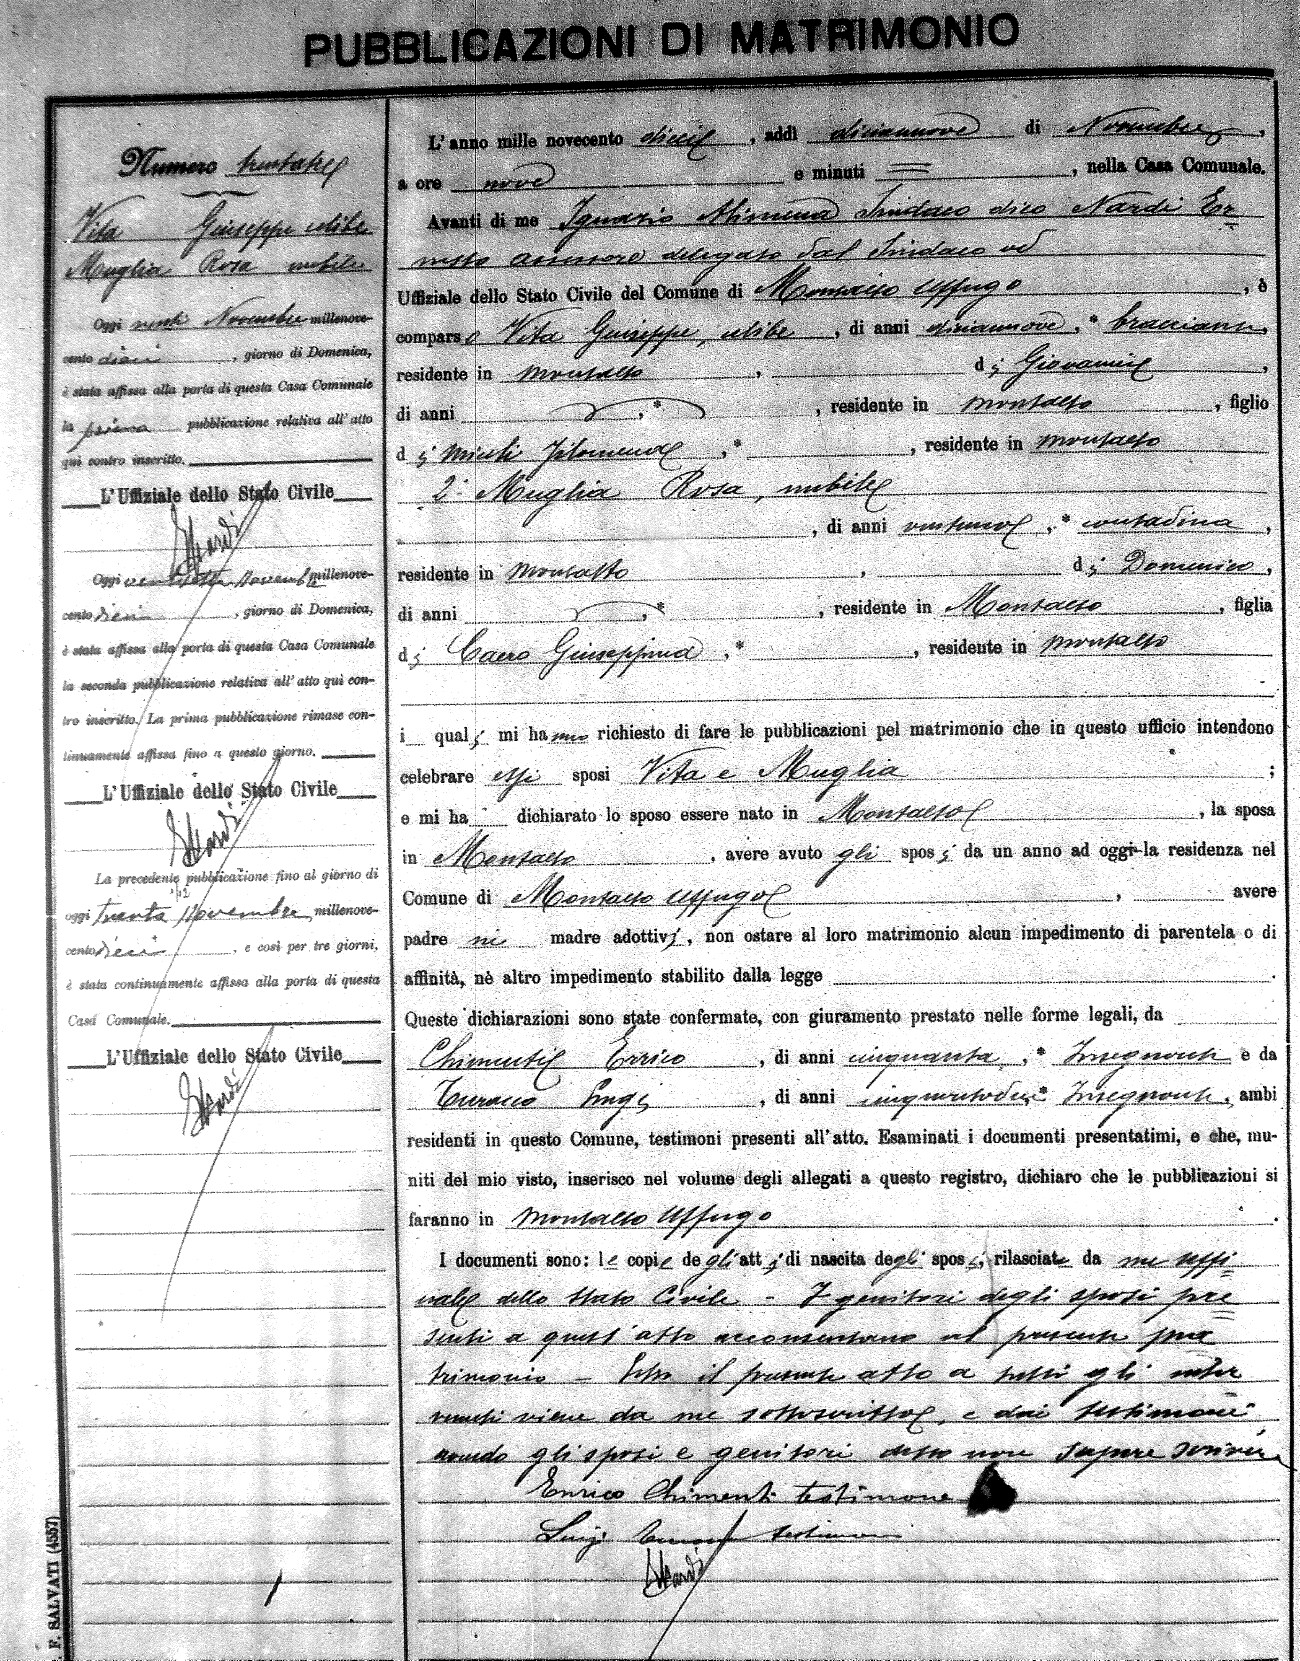 PUBBLICAZIONI DI MATRIMONIO
Numero
Vita Giuseppe celibe
Muglia Rosa nubile
Oggi venti Novembre millenove-
cento dieci, giorno di Domenica,
è stata affissa alla porta di questa Casa Comunale
la prima pubblicazione relativa all' atto
quì contro inscritto.
L'Uffiziale dello Stato Civile
Nardi
Oggi ventisette Novemb millenove-
cento dieci, giorno di Domenica,
è stata affissa alla porta di questa Casa Comunale
la seconda pubblicazione relativa all' atto quì con-
tro inscritto. La prima pubblicazione rimase con-
tinuamente affissa fino a questo giorno.
L'Uffiziale dello Stato Civile
Nardi
La precedente pubblicazione fino al giorno di
oggi trenta Novembre, millenove-
cento dieci, e così per tre giorni,
è stata continuamente affissa alla porta di questa
Casa Comunale.
L'Uffiziale dello Stato Civile
Nardi
L' anno mille novecento dieci, addì diciannove di Novembre,
a ore nove e minuti =, nella Casa Comunale.
Avanti di me Ignazio Alimena Sindaco dico Nardi Er=
nesto assessore delegato dal Sindaco ed
Uffiziale dello Stato Civile del Comune di Montalto Uffugo, è
compars o Vita Giuseppe, celibe, di anni diciannove, * bracciante,
residente in Montalto, d i Giovanni,
di anni , * , residente in Montalto, figlio
d i Miceli Filomena, * , residente in Montalto
2° Muglia Rosa, nubile
, di anni ventuno, * contadina,
residente in Montalto, d i Domenico,
di anni , * , residente in Montalto, figlia
d i Caero Giuseppina, * , residente in Montalto
i qual i mi ha nno richiesto di fare le pubblicazioni pel matrimonio che in questo ufficio intendono
celebrare essi sposi Vita e Muglia ;
e mi ha dichiarato lo sposo essere nato in Montalto, la sposa
in Montalto, avere avuto gli spos i da un anno ad oggi la residenza nel
Comune di Montalto Uffugo, avere
padre nè madre adottivi, non ostare al loro matrimonio alcun impedimento di parentela o di
affinità, nè altro impedimento stabilito dalla legge .
Queste dichiarazioni sono state confermate, con giuramento prestato nelle forme legali, da
Chimenti Errico, di anni cinquanta, * Insegnante e da
Luigi, di anni cinquantadue, * Insegnante, ambi
residenti in questo Comune, testimoni presenti all' atto. Esaminati i documenti presentatimi, e che, mu-
niti del mio visto, inserisco nel volume degli allegati a questo registro, dichiaro che le pubblicazioni si
faranno in Montalto Uffugo .
I documenti sono: le copie de gli att i di nascita degli spos i, rilasciate da me uffi=
ziale dello Stato Civile - I genitori degli sposi pre=
senti a quest' atto acconsentono al presente ma
trimonio - Letto il presente atto a tutti gli inter
venuti viene da me sottoscritto, e dai testimoni
avendo gli sposi e genitori detto non sapere scrivere
Enrico Chimenti testimone
Luigi testimone
Nardi
F. SALVATI (4557)